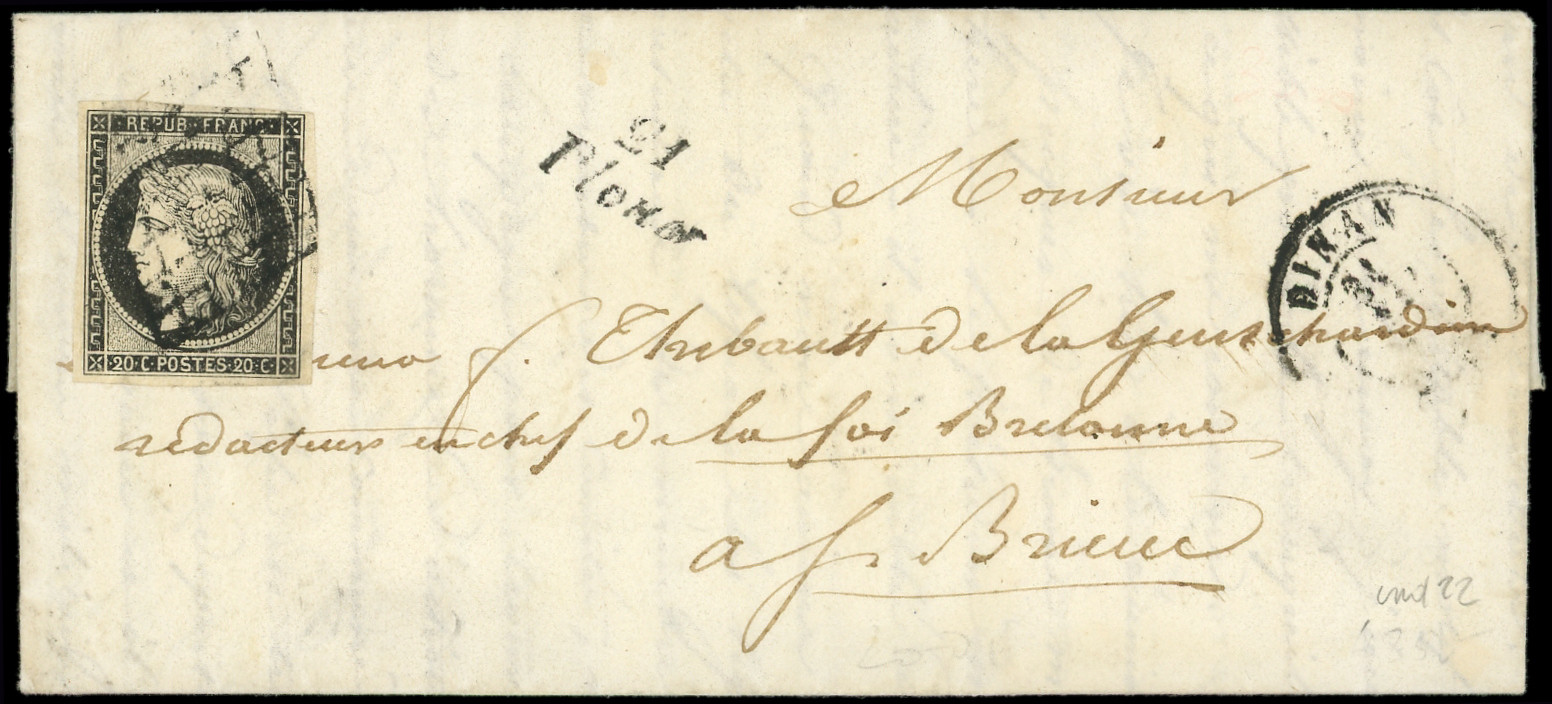 REPUB·FRANC·
20·C·POSTES·20·C·
21
Plouer
DINAN
Monsieur
Thibault de la Guichardière
rédacteur en chef de la foi Bretonne
a St Brieuc